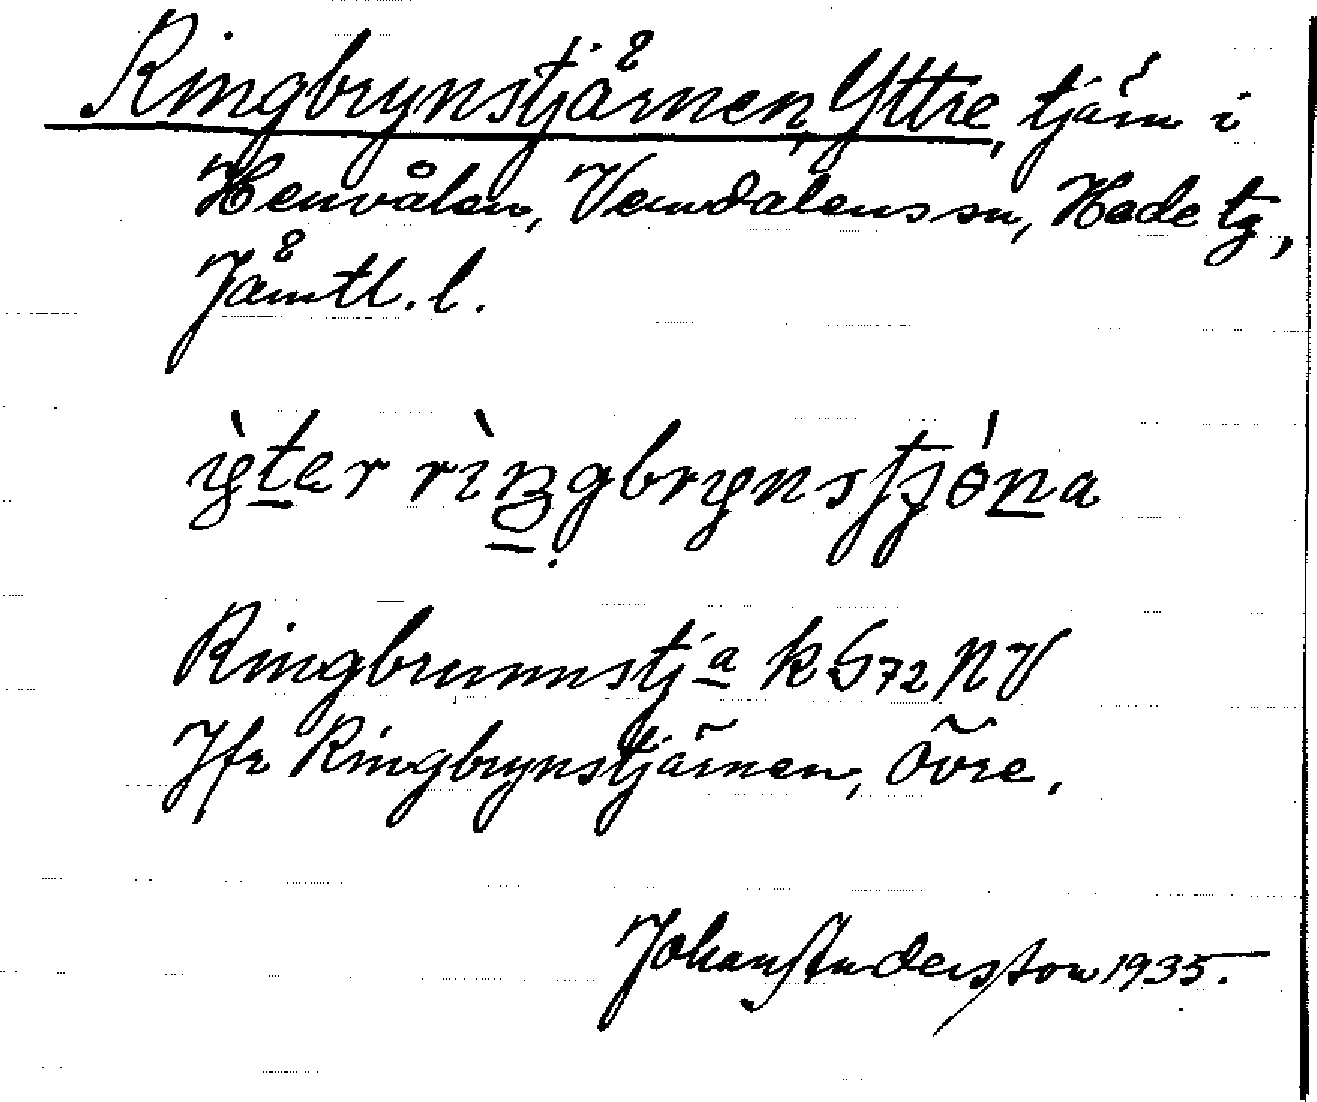 Ringbrynstjärnen, Yttre, tjärn i
Henvålen, Vemdalens sn, Hede tg,
Jämtl. l.
ỳter rìŋgbrynstjǿna
Ringbrunnstja k G72 NV
Jfr Ringbrynstjärnen, Övre.
Johan Andersson 1935.